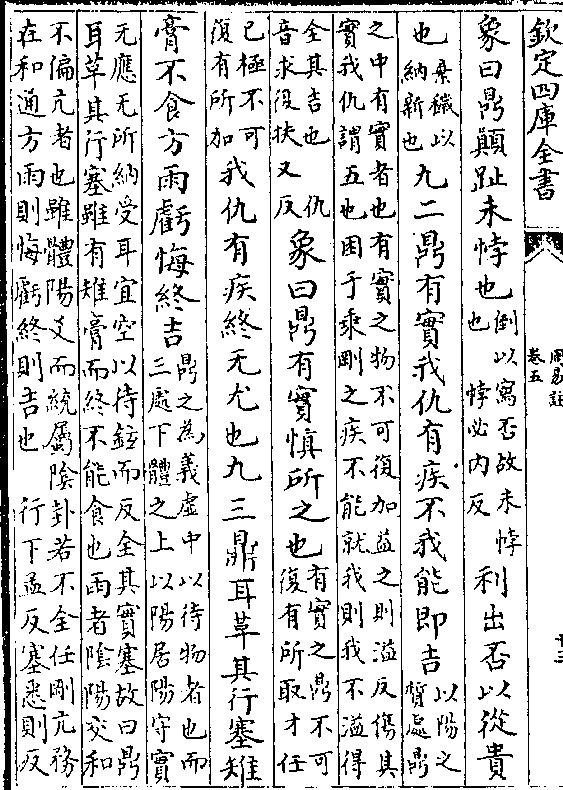 欽定四庫全書
周易註
卷五
十三
象曰鼎顛趾未悖也
倒以寫否故未悖
也 悖必内反
利出否以從貴
也
棄穢以
納新也
九二鼎有實我仇有疾不我能即吉
以陽之
質處鼎
之中有實者也有實之物不可復加益之則溢反傷其
實我仇謂五也困于乘剛之疾不能就我則我不溢得
全其吉也 仇
音求復扶又反
象曰鼎有實慎所之也
有實之鼎不可
復有所取才任
已極不可
復有所加
我仇有疾終无尤也九三鼎耳革其行塞雉
膏不食方雨虧悔終吉
鼎之為義虛中以待物者也而
三處下體之上以陽居陽守實
无應无所納受耳宜空以待鉉而反全其實塞故曰鼎
耳革其行塞雖有雉膏而終不能食也雨者陰陽交和
不偏亢者也雖體陽爻而統屬陰卦若不全任剛亢務
在和通方雨則悔虧終則吉也 行下孟反塞悉則反